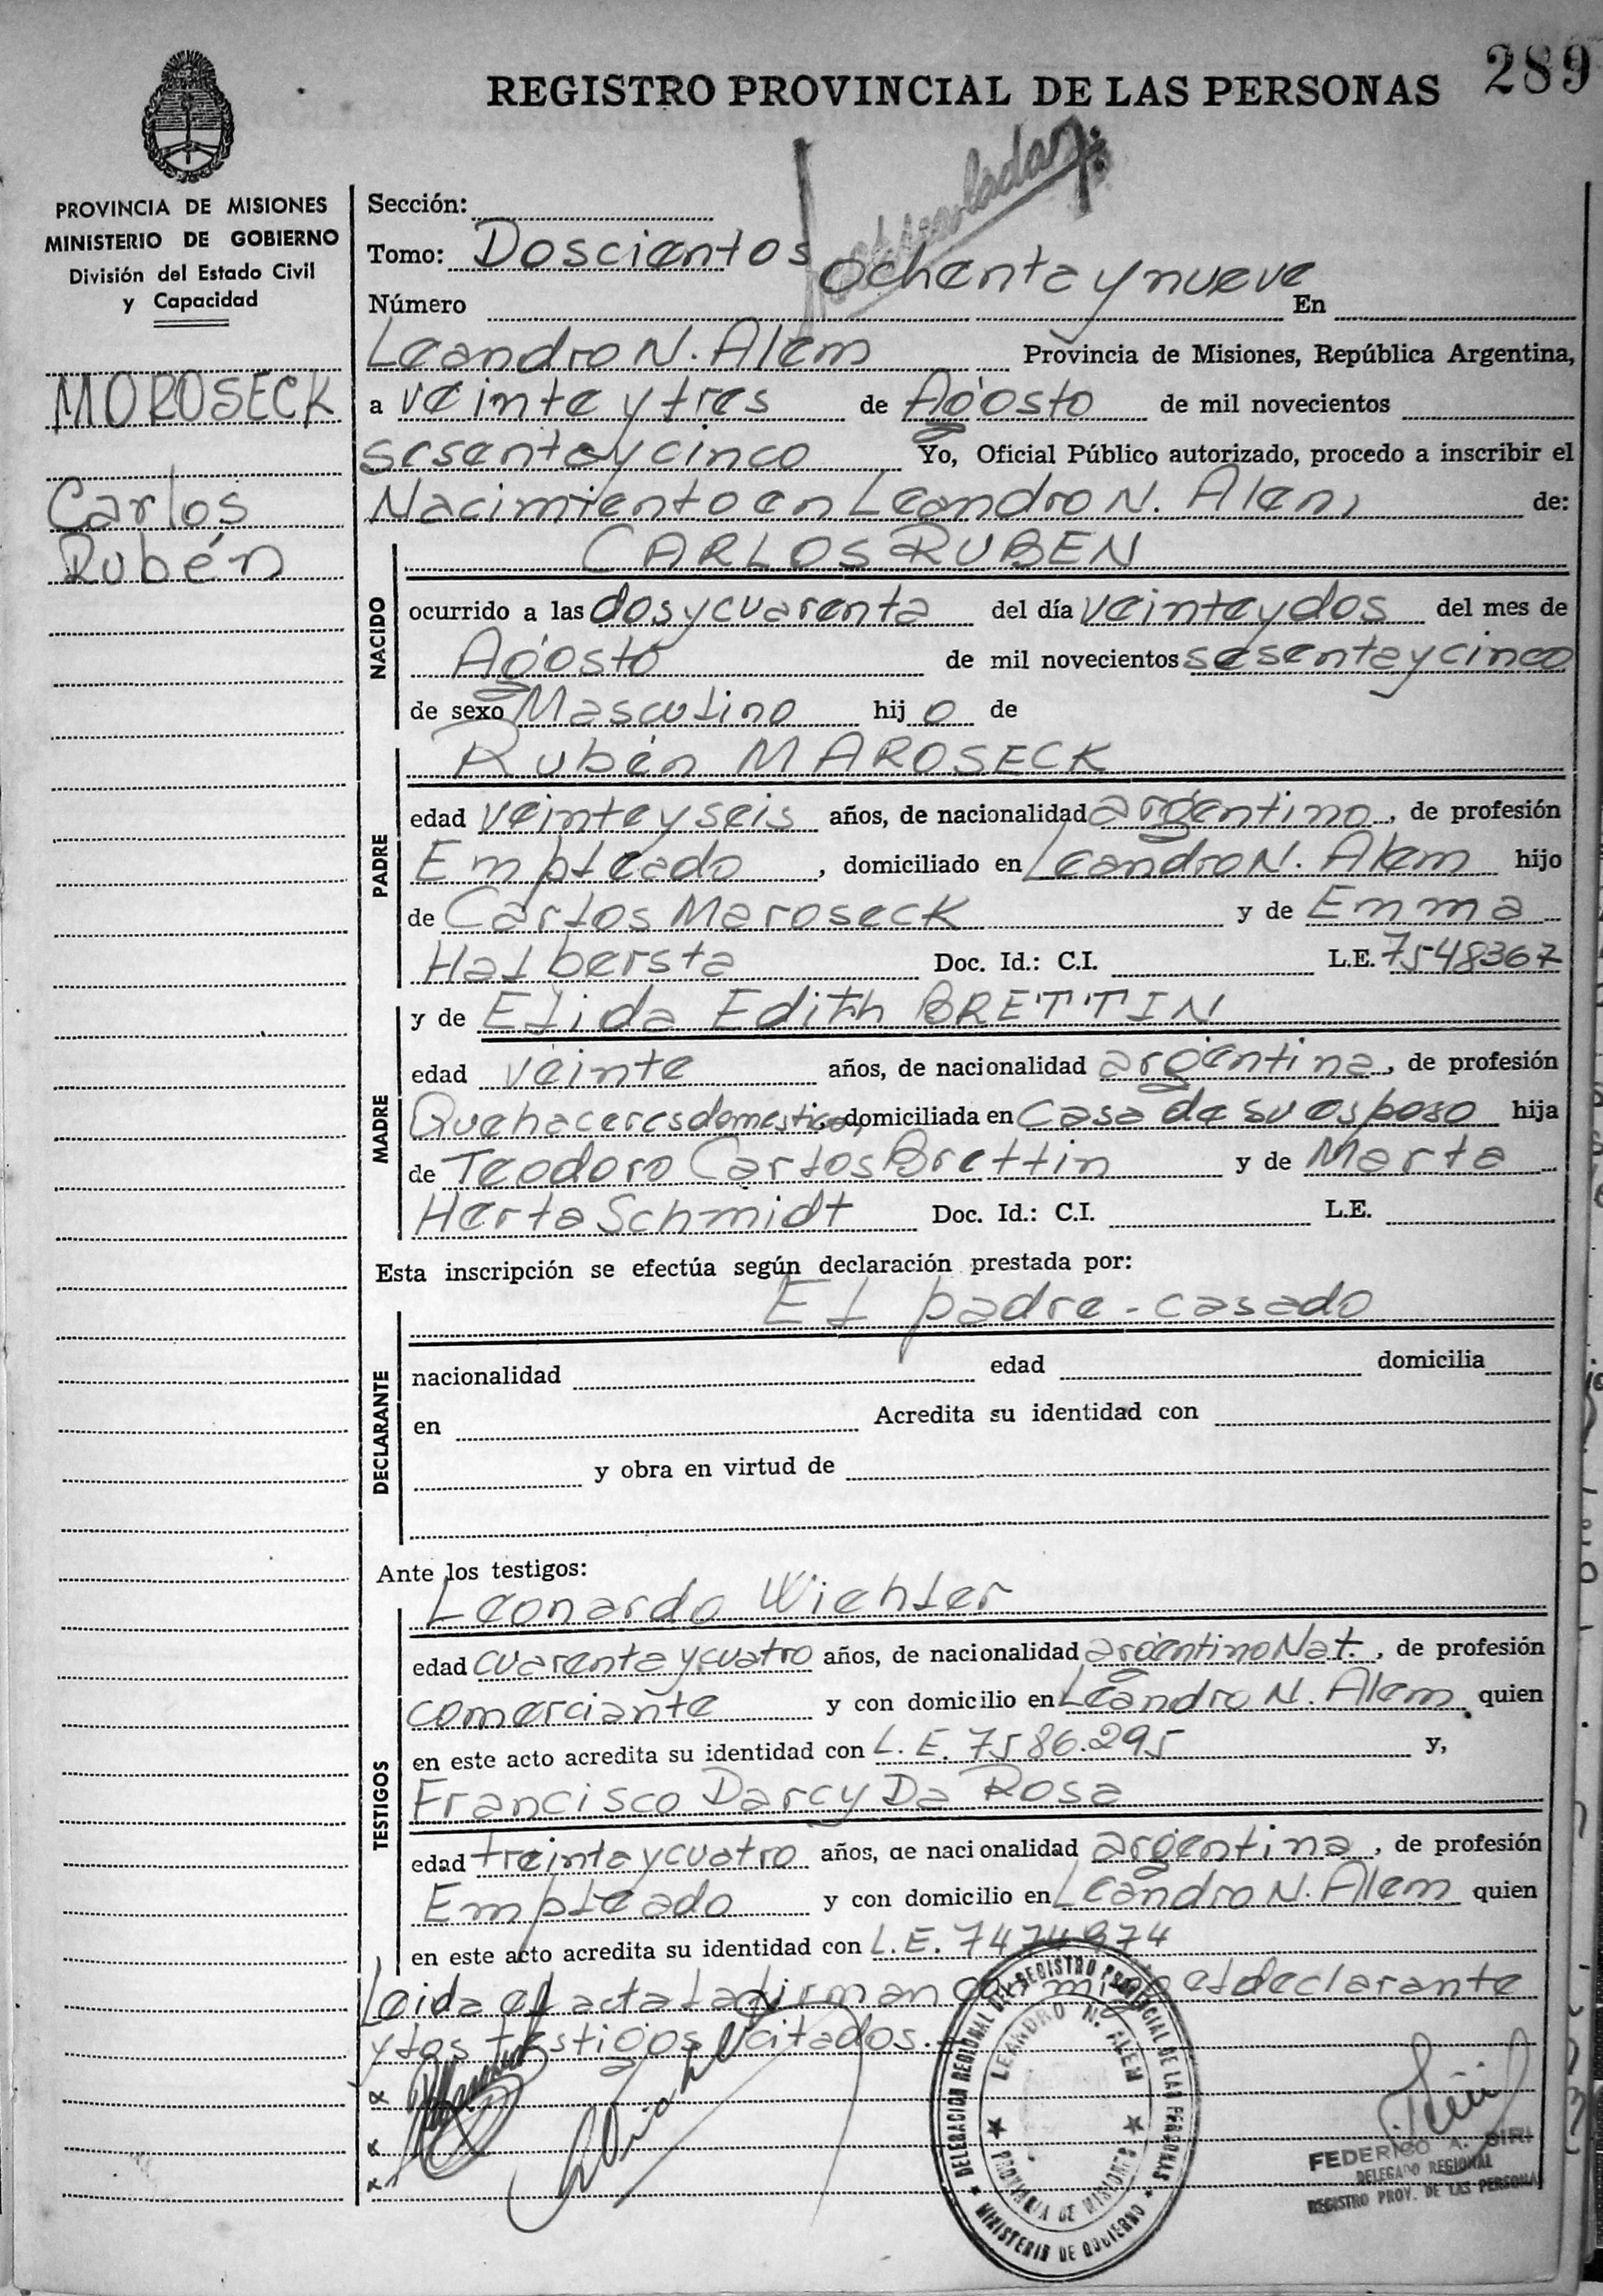 REGISTRO PROVINCIAL DE LAS PERSONAS 289
PROVINCIA DE MISIONES
MINISTERIO DE GOBIERNO
División del Estado Civil
y Capacidad
MOROSECK
Carlos
Rubén
Sección:
Tomo: Doscientos ochenta y nueve
Número En
Leandro N. Alem Provincia de Misiones, República Argentina,
a veinte y tres de Agosto de mil novecientos
sesenta y cinco Yo, Oficial Público autorizado, procedo a inscribir el
Nacimiento en Leandro N. Alem, de:
NACIDO
CARLOS RUBEN
ocurrido a las dos y cuarenta del día veinte y dos del mes de
Agosto de mil novecientos sesenta y cinco
de sexo Masculino hij o de
PADRE
Rubén MAROSECK
edad veinte y seis años, de nacionalidad argentino, de profesión
Empleado, domiciliado en Leandro N. Alem hijo
de Carlos Maroseck y de Emma
Halbersta Doc. Id.: C.I. L.E. 7548367
MADRE
y de Elida Edith BRETTIN
edad veinte años, de nacionalidad argentina, de profesión
Quehaceres domesticos, domiciliada en casa de su esposo hija
de Teodoro Carlos Brettin y de Marta
Herta Schmidt Doc. Id.: C.I. L.E.
Esta inscripción se efectúa según declaración prestada por:
DECLARANTE
El padre - casado
nacionalidad edad domicilia
en Acredita su identidad con
y obra en virtud de
Ante los testigos:
TESTIGOS
Leonardo Wichler
edad cuarenta y cuatro años, de nacionalidad argentino Nat., de profesión
comerciante y con domicilio en Leandro N. Alem quien
en este acto acredita su identidad con L. E. 7586.295 y,
Francisco Darcy Da Rosa
edad treinta y cuatro años, de nacionalidad argentina, de profesión
Empleado y con domicilio en Leandro N. Alem quien
en este acto acredita su identidad con L.E. 7474974
Leida el acta la firman conmigo el declarante
y los testigos citados.-
DELEGACION REGIONAL DEL REGISTRO PROVINCIAL DE LAS PERSONAS
LEANDRO N. ALEM
PROVINCIA DE MISIONES
MINISTERIO DE GOBIERNO
FEDERICO A. SIRI
DELEGADO REGIONAL
REGISTRO PROV. DE LAS PERSONAS